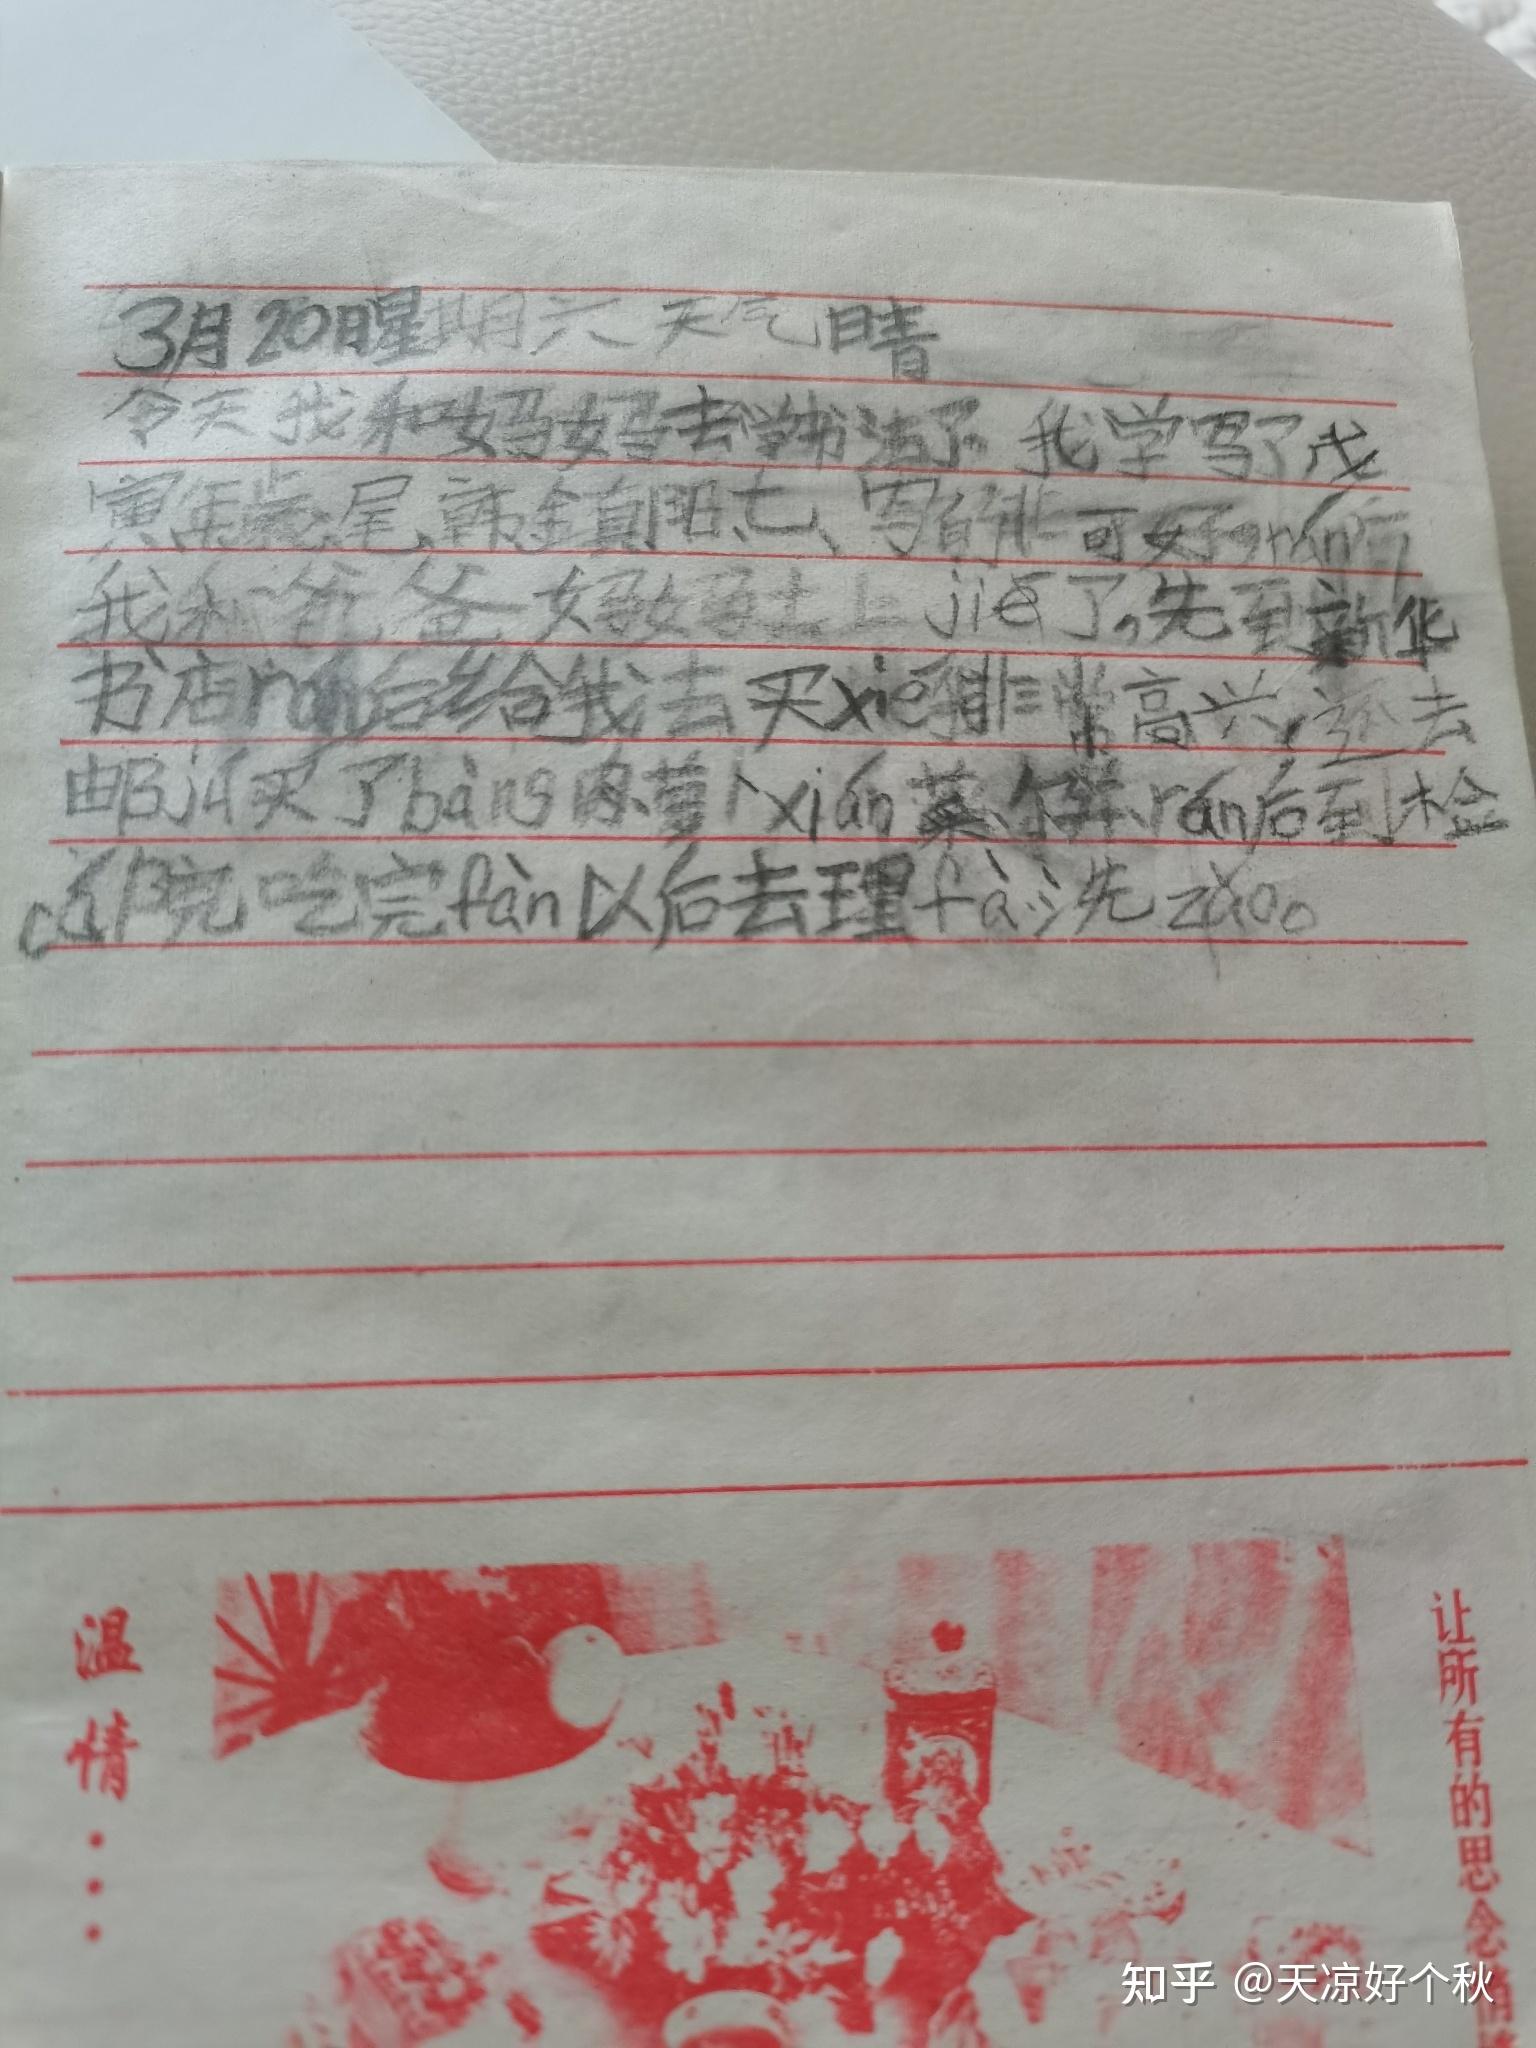 3月20日星期六 天气晴
今天我和妈妈去学书法了 我学写了戊
寅年岁尾韩金真阳七、写的非可好,rán后
我和爸爸妈妈去上jiē了,先到新华
书店rán后给我去买xié非常高兴,还去
邮jú买了bàng肉萝卜xián菜 rán后到检
察院吃完fàn以后去理fà洗zǎo。
温情···
让所有的思念
知乎 @天凉好个秋